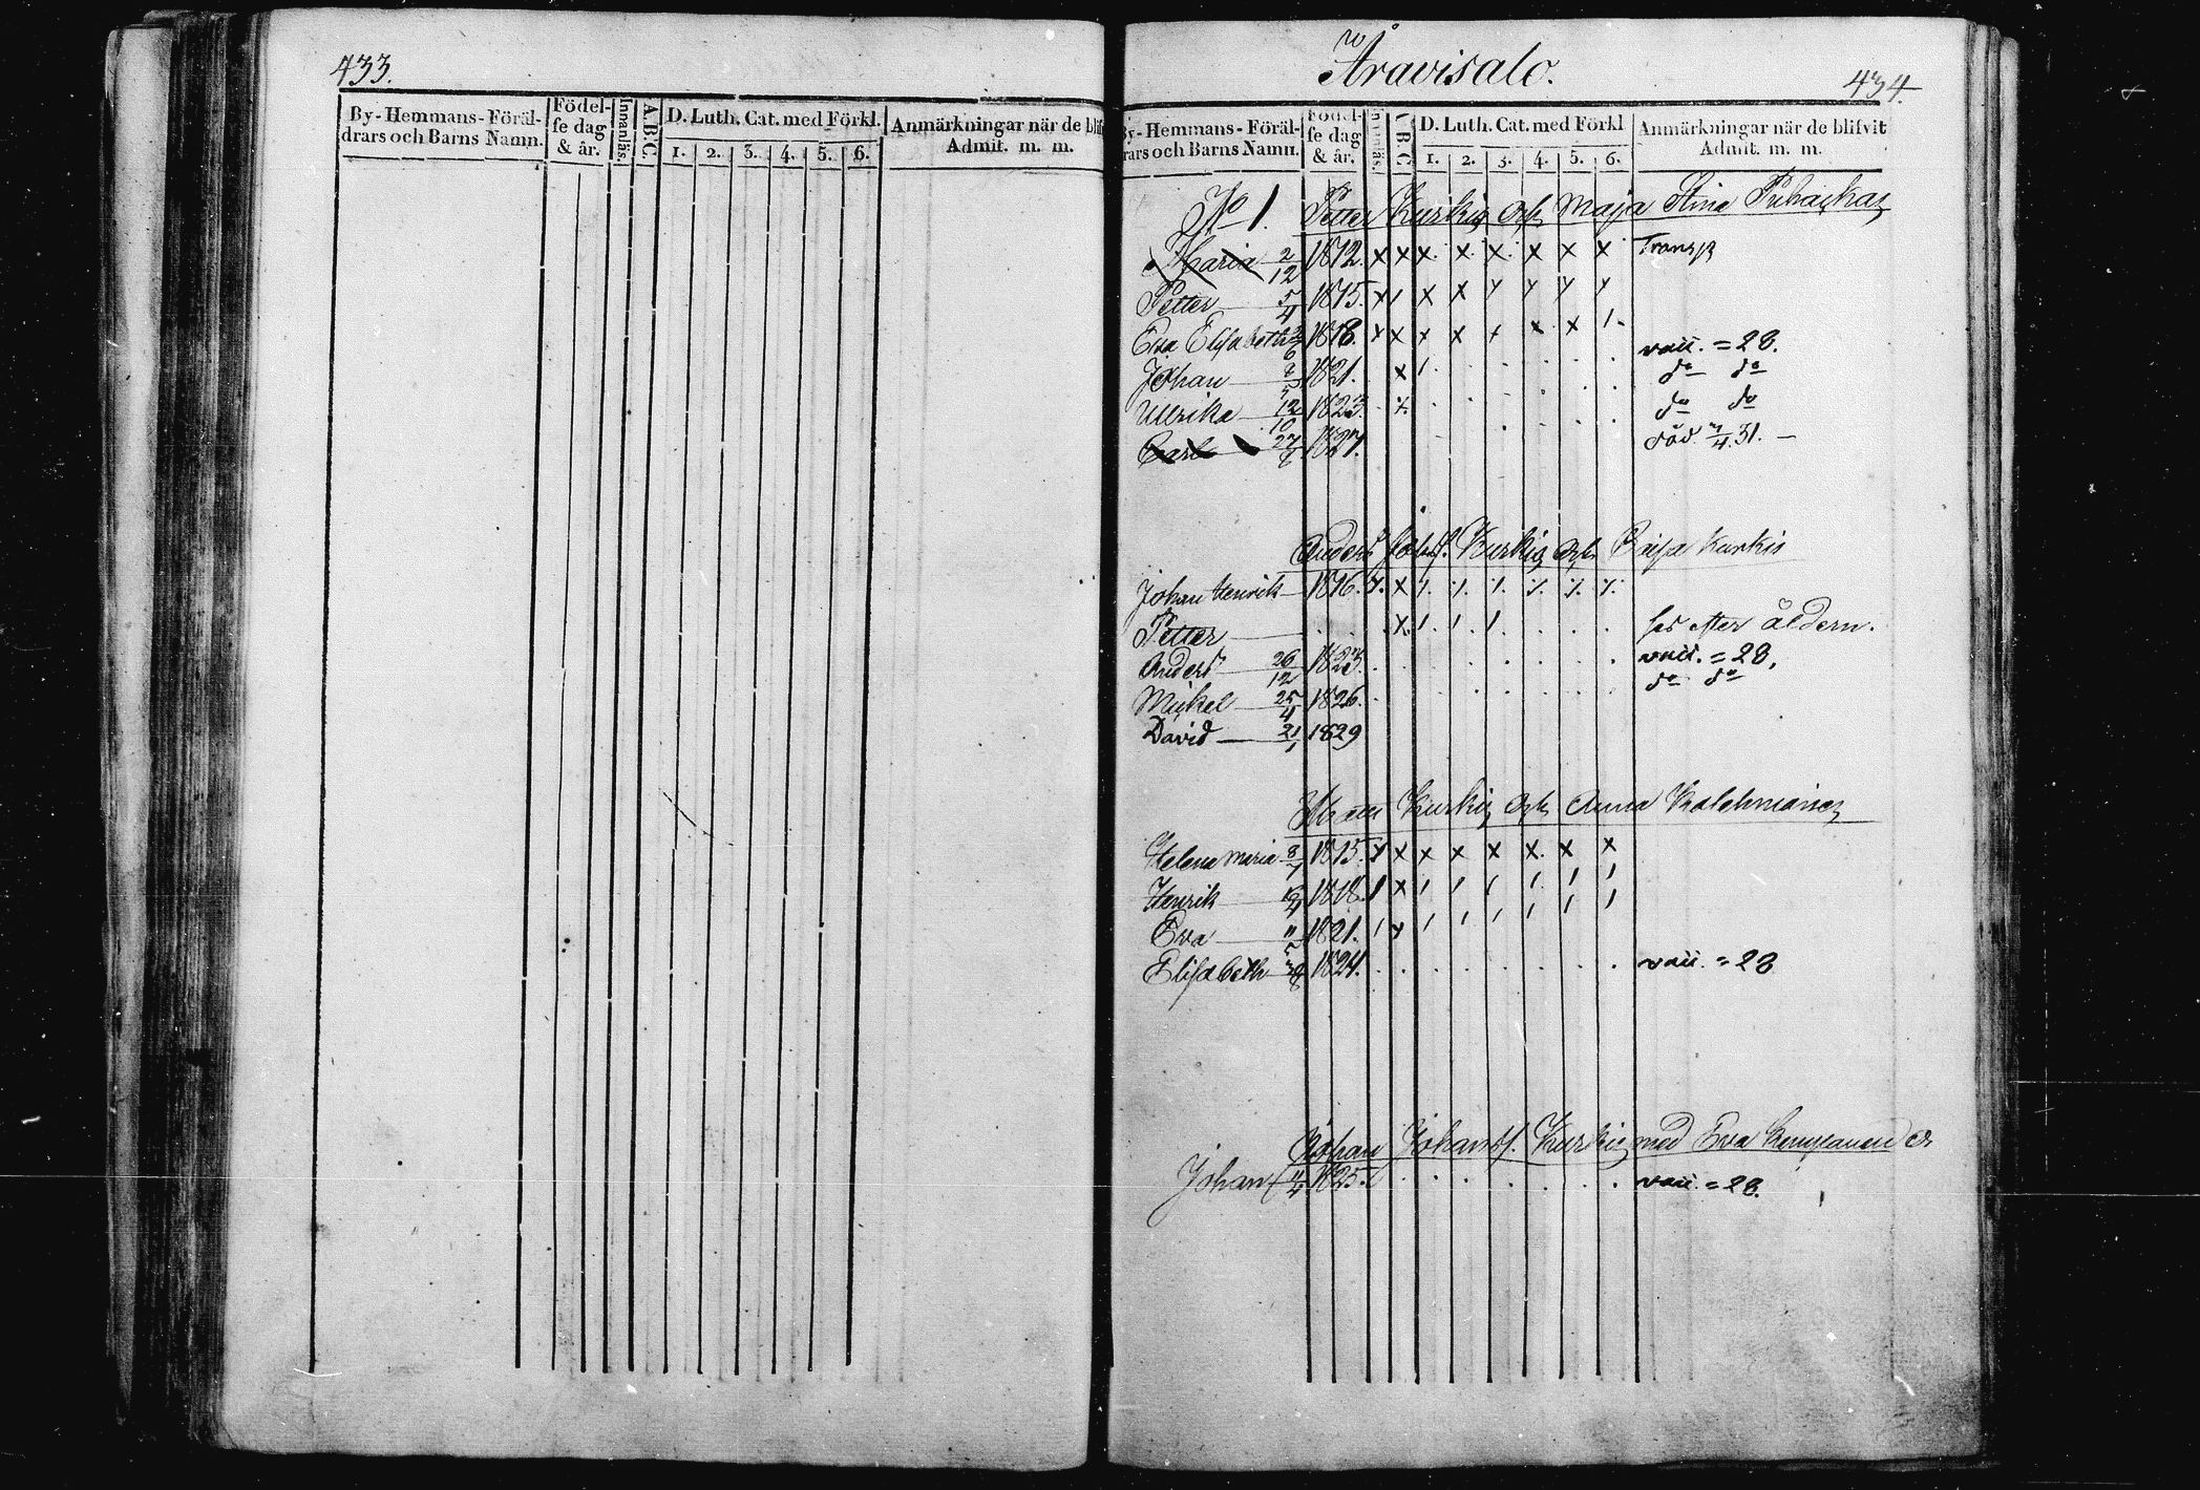 433.
By-Hemmans-Föräl-
drars och Barns Namn.
Födel-
se dag
& år.
Innanläs.
A.B.C.
D. Luth. Cat. med Förkl.
1. 2. 3. 4. 5. 6.
Anmärkningar när de blif
Admit. m. m.
Åravisalo.
434.
By-Hemmans-Föräl-
rars och Barns Namn.
Födel-
se dag
& år.
Innanläs.
A B C
D. Luth. Cat. med Förkl
1. 2. 3. 4. 5. 6.
Anmärkningar när de blifvit
Admit. m. m.
No 1. Petter Kurki och Maja Stina
Maria 2/12 1812. x x x x x x x x Transp
Petter 5/4 1815. x / x x y y y y
Eva Elisabeth 1818. x x x x x x x /. = 28.
Johan 1821. x / do do
Ullrika 12/10 1823. do do
Carl 27 1827. död 31. –
Anders Kurki och Kurkis
Johan Henrik 1816.
Petter x / / / efter åldern.
Anders 26/12 1823. = 28.
Mickel 25/4 1826. do do
David 21/1 1829
Kurki och Anna
Helena Maria 8 1815. x x x x x x x x
Henrik 1818. / x / / / / / /
Eva 1821. / x / / / / / /
Elisabeth 1824. = 28
Johan Johansf. Kurki med Eva
Johan 1825. = 28.